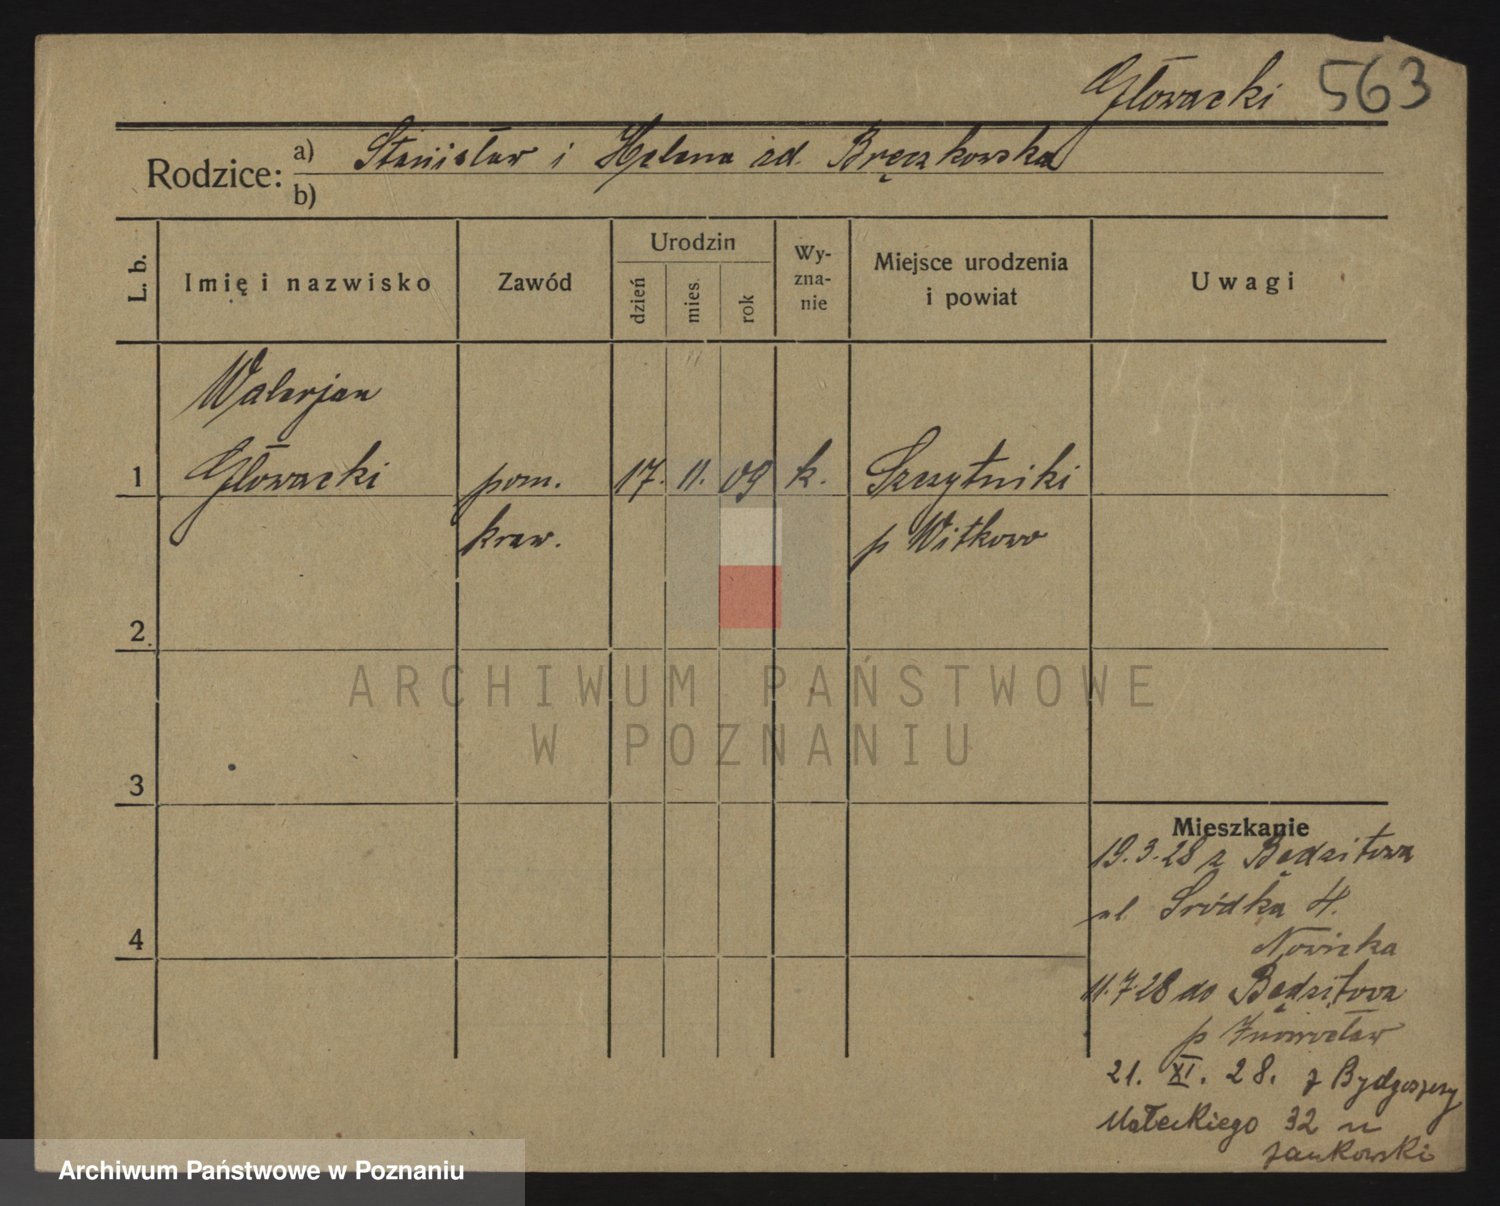 Głowacki 563
Rodzice: a) Stanisław i Helena zd. Bręczkowska
b)
L. b. Imię i nazwisko Zawód Urodzin dzień mies. rok Wyznanie Miejsce urodzenia i powiat Uwagi
Walerjan
1 Głowacki pom. 17. 11. 09 k. Szczytniki
kraw. p Witkowo
2
ARCHIWUM PAŃSTWOWE
W POZNANIU
3
Mieszkanie
19.3.28 z Będzitowa
ul Śródka 4.
Nowicka
4
11.7.28 do Będzitowa
p Inowrocław
21. XI. 28. z Bydgoszczy
Małeckiego 32 u
Jankowski
Archiwum Państwowe w Poznaniu